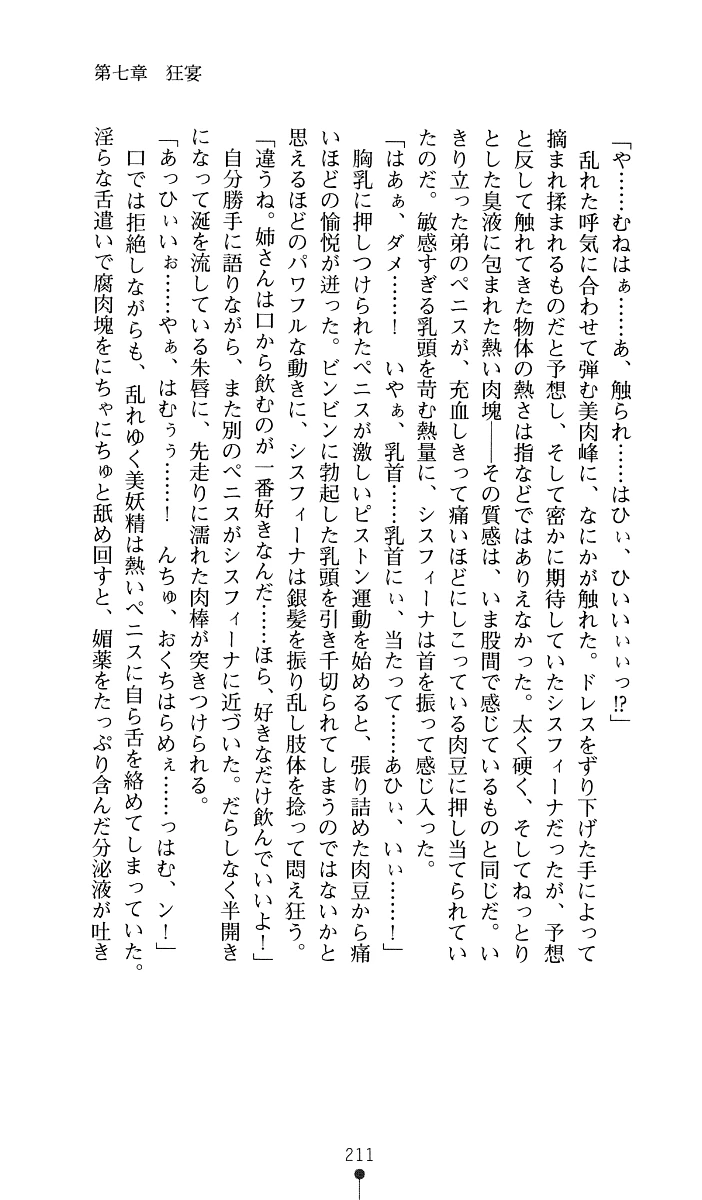 第七章　狂宴
「や……むねはぁ……あ、触られ……はひぃ、ひいぃぃぃっ!?」
乱れた呼気に合わせて弾む美肉峰に、なにかが触れた。ドレスをずり下げた手によって
摘まれ揉まれるものだと予想し、そして密かに期待していたシスフィーナだったが、予想
と反して触れてきた物体の熱さは指などではありえなかった。太く硬く、そしてねっとり
とした臭液に包まれた熱い肉塊――その質感は、いま股間で感じているものと同じだ。い
きり立った弟のペニスが、充血しきって痛いほどにしこっている肉豆に押し当てられてい
たのだ。敏感すぎる乳頭を苛む熱量に、シスフィーナは首を振って感じ入った。
「はあぁ、ダメ……！　いやぁ、乳首……乳首にぃ、当たって……あひぃ、いぃ……！」
胸乳に押しつけられたペニスが激しいピストン運動を始めると、張り詰めた肉豆から痛
いほどの愉悦が迸った。ビンビンに勃起した乳頭を引き千切られてしまうのではないかと
思えるほどのパワフルな動きに、シスフィーナは銀髪を振り乱し肢体を捻って悶え狂う。
「違うね。姉さんは口から飲むのが一番好きなんだ……ほら、好きなだけ飲んでいいよ！」
自分勝手に語りながら、また別のペニスがシスフィーナに近づいた。だらしなく半開き
になって涎を流している朱唇に、先走りに濡れた肉棒が突きつけられる。
「あっひぃいぉ……やぁ、はむぅぅ……！　んちゅ、おくちはらめぇ……っはむ、ン！」
口では拒絶しながらも、乱れゆく美妖精は熱いペニスに自ら舌を絡めてしまっていた。
淫らな舌遣いで腐肉塊をにちゃにちゅと舐め回すと、媚薬をたっぷり含んだ分泌液が吐き
211